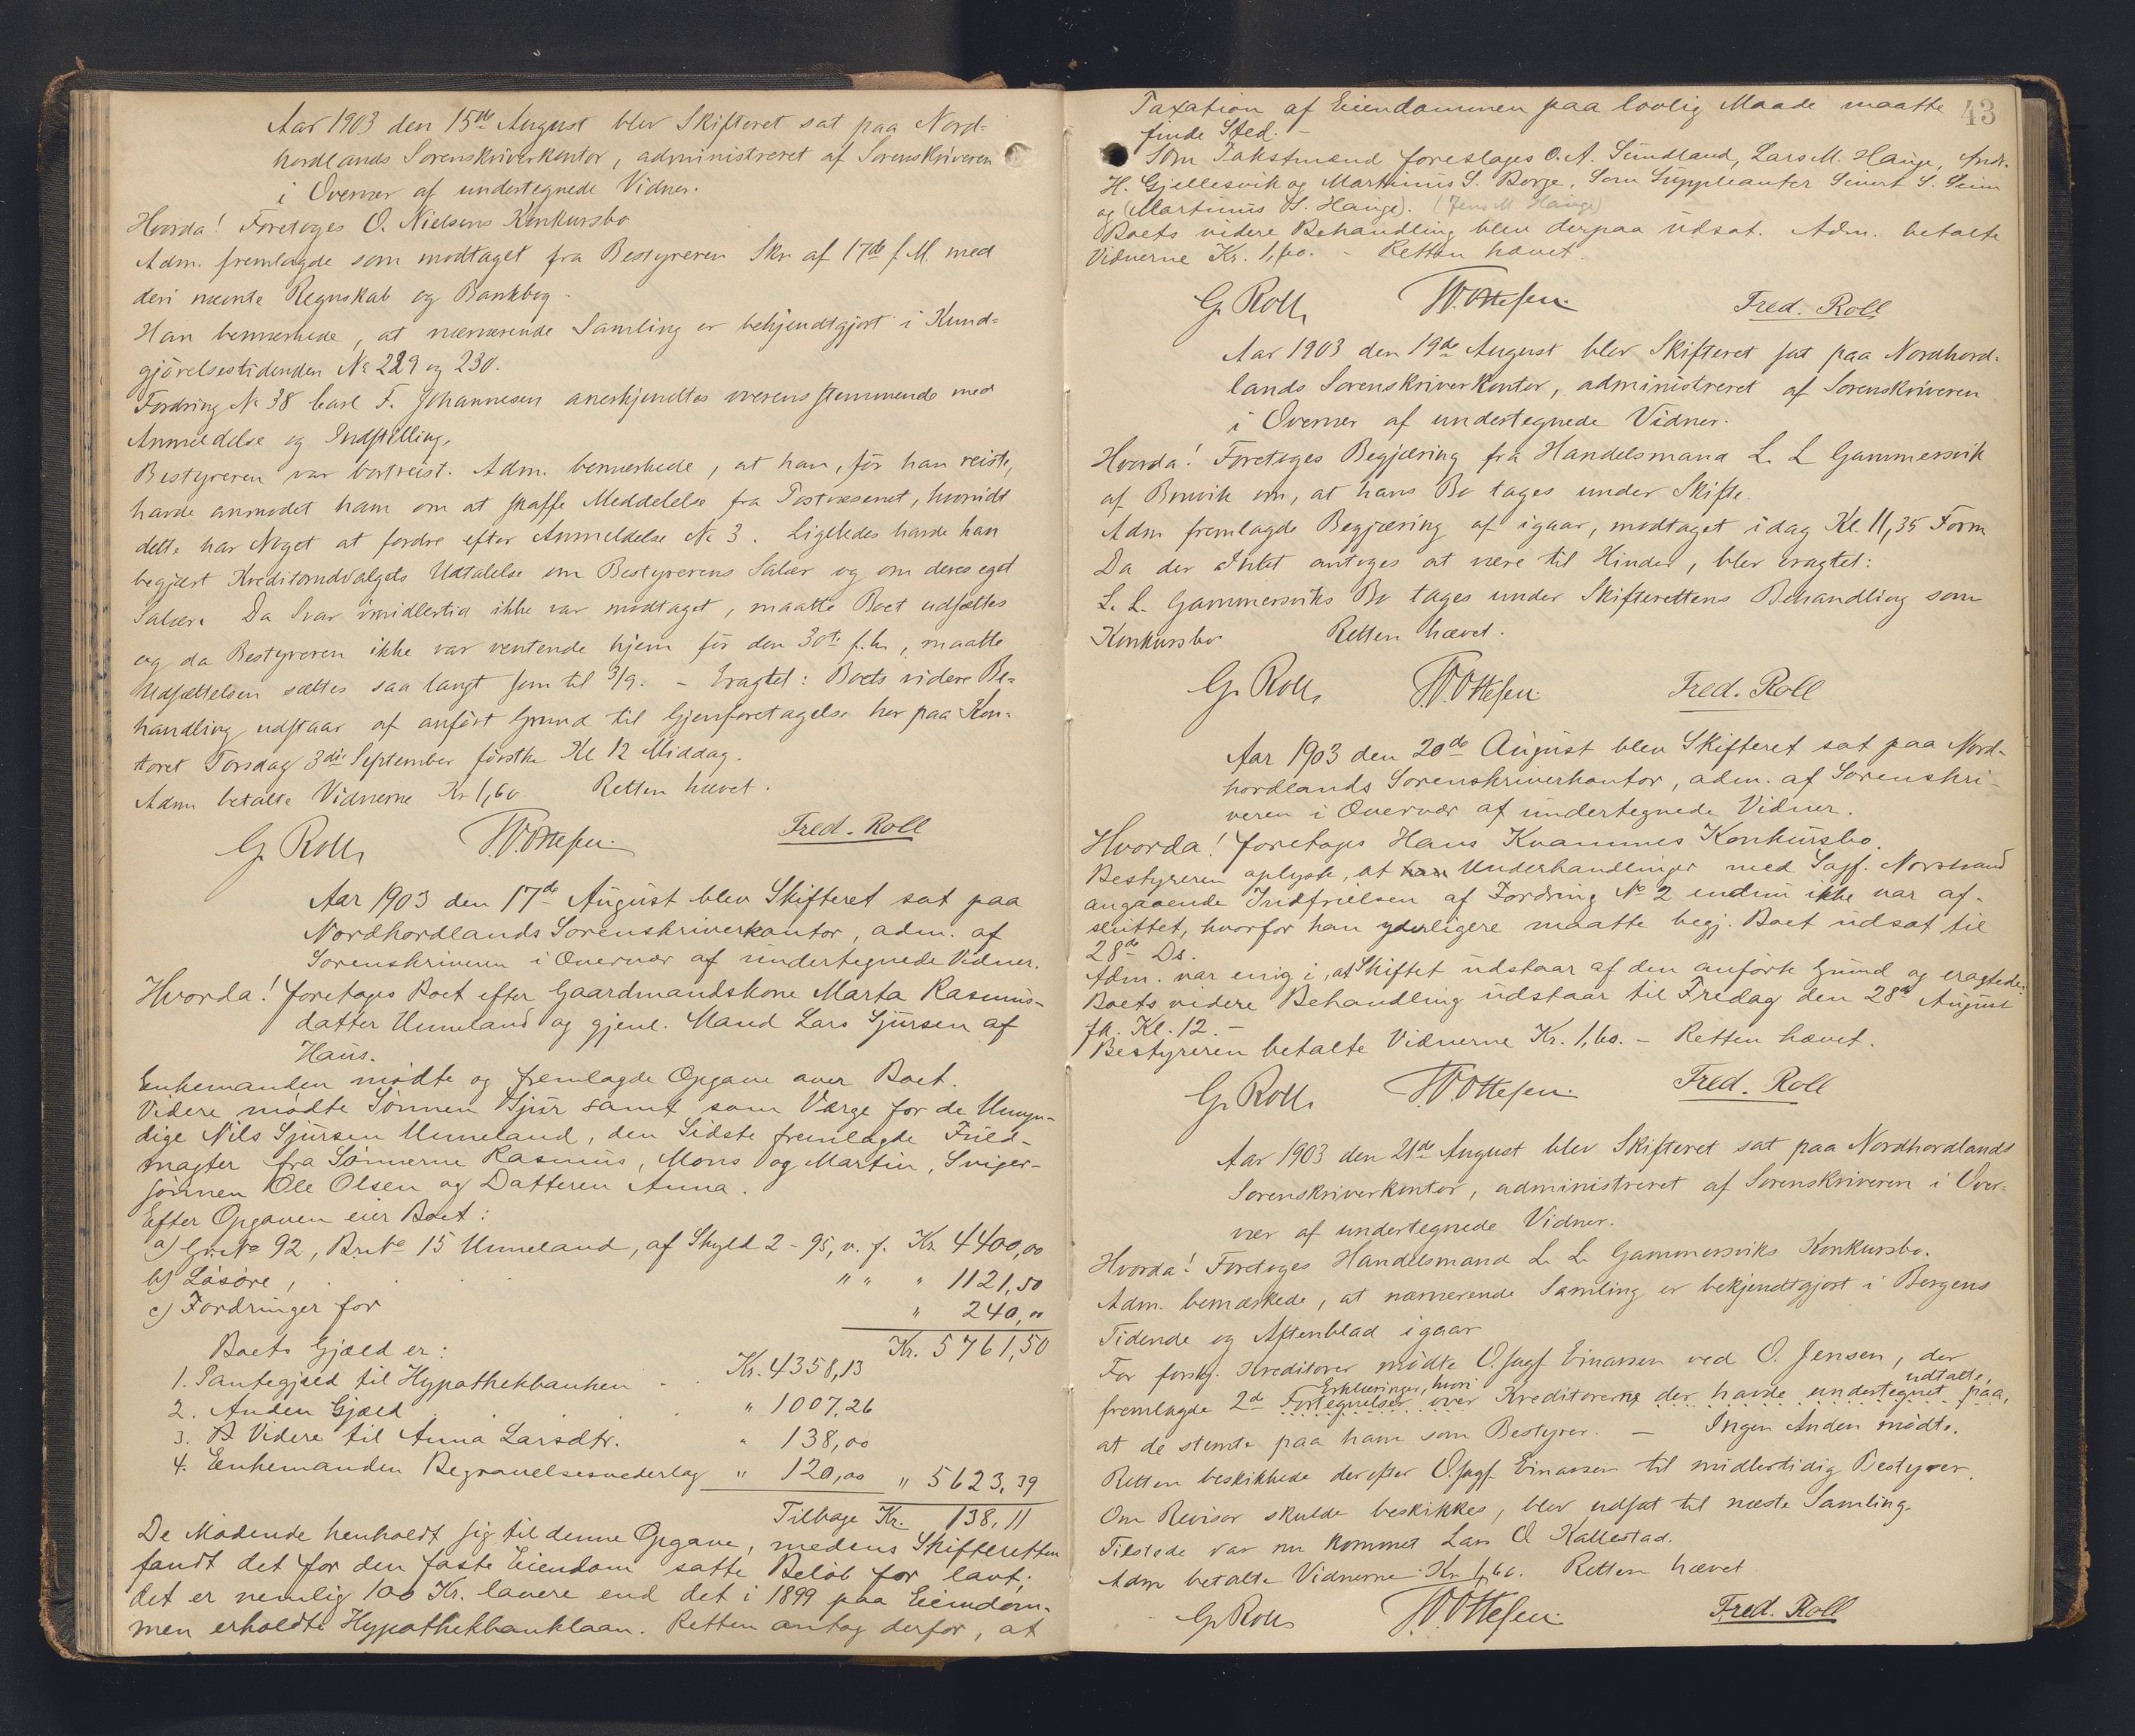 Aar 1903 den 15de August blev Skifteret sat paa Nord-
hordlands Sorenskriverkontor, administreret af Sorenskriveren
i Overvær af undertegnede Vidner.
Hvorda! Foretoges O. Nielsens Konkursbo
Adm. fremlagde som modtaget fra Bestyreren Skr. af 17de f.M. med
deri nævnte Regnskab og Bankbog.
Han bemærkede, at nærværende Samling er bekjendtgjort i Kund-
gjörelsestidenden No 229 og 230.
Fordring No 38 Carl F. Johannesen anerkjendtes overensstemmende med
Anmeldelse og Indstilling.
Bestyreren var bortreist. Adm. bemærkede, at han, för han reiste,
havde anmodet ham om at skaffe Meddelelse fra Postvæsenet, hvorvidt
dette har Noget at fordre efter Anmeldelse No 3. Ligeledes havde han
begjært Kreditorudvalgets Udtalelse om Bestyrerens Salær og om deres eget
Salær. Da Svar imidlertid ikke var modtaget, maatte Boet udsættes
og da Bestyreren ikke var ventende hjem för den 30te f.k., maatte
Udsættelsen sættes saa langt som til 3/9. - Eragtet: Boets videre Be-
handling udstaar af anfört Grund til Gjenforetagelse her paa Kon-
toret Torsdag 3die September förstk. Kl 12 Middag.
Adm betalte Vidnerne Kr 1,60. Retten hævet.
G. Roll W. Ottesen Fred. Roll
Aar 1903 den 17de August blev Skifteret sat paa
Nordhordlands Sorenskriverkontor, adm. af
Sorenskriveren i Overvær af undertegnede Vidner.
Hvorda! foretoges Boet efter Gaardmandskone Marta Rasmus-
datter Unneland og gjenl. Mand Lars Sjursen af
Haus.
Enkemanden mödte og fremlagde Opgave over Boet.
Videre mödte Sönnen Sjur samt som Værge for de Umyn-
dige Nils Sjursen Unneland, den Sidste fremlagde Fuld-
magter fra Sönnerne Rasmus, Mons og Martin, Sviger-
sönnen Ole Olsen og Datteren Anna.
Efter Opgaven eier Boet:
a) G.No 92, Br.No 15 Unneland, af Skyld 2-95, v. f. Kr. 4400,00
b) Lösöre, " " " 1121,50
c) Fordringer for " 240,00
Kr. 5761,50
Boets Gjæld er:
1. Pantegjæld til Hypothekbanken . Kr. 4358,13
2. Anden Gjæld . . . " 1007,26
3. Videre til Anna Larsdtr. " 138,00
4. Enkemanden Begravelsesvederlag " 120,00 " 5623,39
Tilbage Kr. 138,11
De Mödende henholdt sig til denne Opgave, medens Skifteretten
fandt det for den faste Eiendom satte Belöb for lavt;
det er nemlig 100 Kr. lavere end det i 1899 paa Eiendom-
men erholdte Hypothekbanklaan. Retten antog derfor, at
43
Taxation af Eiendommen paa lovlig Maade maatte
finde Sted. -
Som Takstmænd foreslages O. A. Sundland, Lars M. Hauge, Andr.
H. Gjellesvik og Martinus S. Borge, Som Suppleanter Sivert S. Seim
og (Martinus H. Hauge). (Jens M. Hauge)
Boets videre Behandling blev derpaa udsat. Adm. betalte
Vidnerne Kr. 1,60. - Retten hævet.
G. Roll W. Ottesen Fred. Roll
Aar 1903 den 19de August blev Skifteret sat paa Nordhord-
lands Sorenskriverkontor, administreret af Sorenskriveren
i Overvær af undertegnede Vidner.
Hvorda! Foretoges Begjæring fra Handelsmand L. L Gammersvik
af Bruvik om, at hans Bo tages under Skifte.
Adm fremlagde Begjæring af igaar, modtaget idag Kl. 11,35 Form
Da der Intet antoges at være til Hinder, blev eragtet:
L. L. Gammersviks Bo tages under Skifterettens Behandling som
Konkursbo Retten hævet.
G. Roll W. Ottesen Fred. Roll
Aar 1903 den 20de August blev Skifteret sat paa Nord-
hordlands Sorenskriverkontor, adm. af Sorenskri-
veren i Overvær af undertegnede Vidner.
Hvorda! foretoges Hans Kvammes Konkursbo.
Bestyreren oplyste, at Underhandlinger med Sagf. Norstrand
angaaende Indfrielsen af Fordring No 2 endnu ikke var af-
sluttet, hvorfor han yderligere maatte begj. Boet udsat til
28de Ds.
Adm. var enig i, at Skiftet udstaar af den anförte Grund og eragtede:
Boets videre Behandling udstaar til Fredag den 28de August
fk. Kl. 12. -
Bestyreren betalte Vidnerne Kr. 1,60. - Retten hævet.
G. Roll W. Ottesen Fred. Roll
Aar 1903 den 21de August blev Skifteret sat paa Nordhordlands
Sorenskriverkontor, administreret af Sorenskriveren i Over-
vær af undertegnede Vidner.
Hvorda! Foretoges Handelsmand L. L. Gammersviks Konkursbo.
Adm. bemærkede, at nærværende Samling er bekjendtgjort i Bergens
Tidende og Aftenblad igaar
For forskj. Kreditorer mödte O.sagf. Einarsen ved O. Jensen, der
Erklæringer, hvori udtalte,
fremlagde 2de Fortegnelser over Kreditorerne der havde undertegnet paa,
at de stemte paa ham som Bestyrer. - Ingen Anden mödte.
Retten beskikkede derefter O.sagf. Einarsen til midlertidig Bestyrer.
Om Revisor skulde beskikkes, blev udsat til næste Samling.
Tilstede var nu kommet Lars O Kallestad.
Adm betalte Vidnerne Kr 1,60. Retten hævet
G. Roll W. Ottesen Fred. Roll